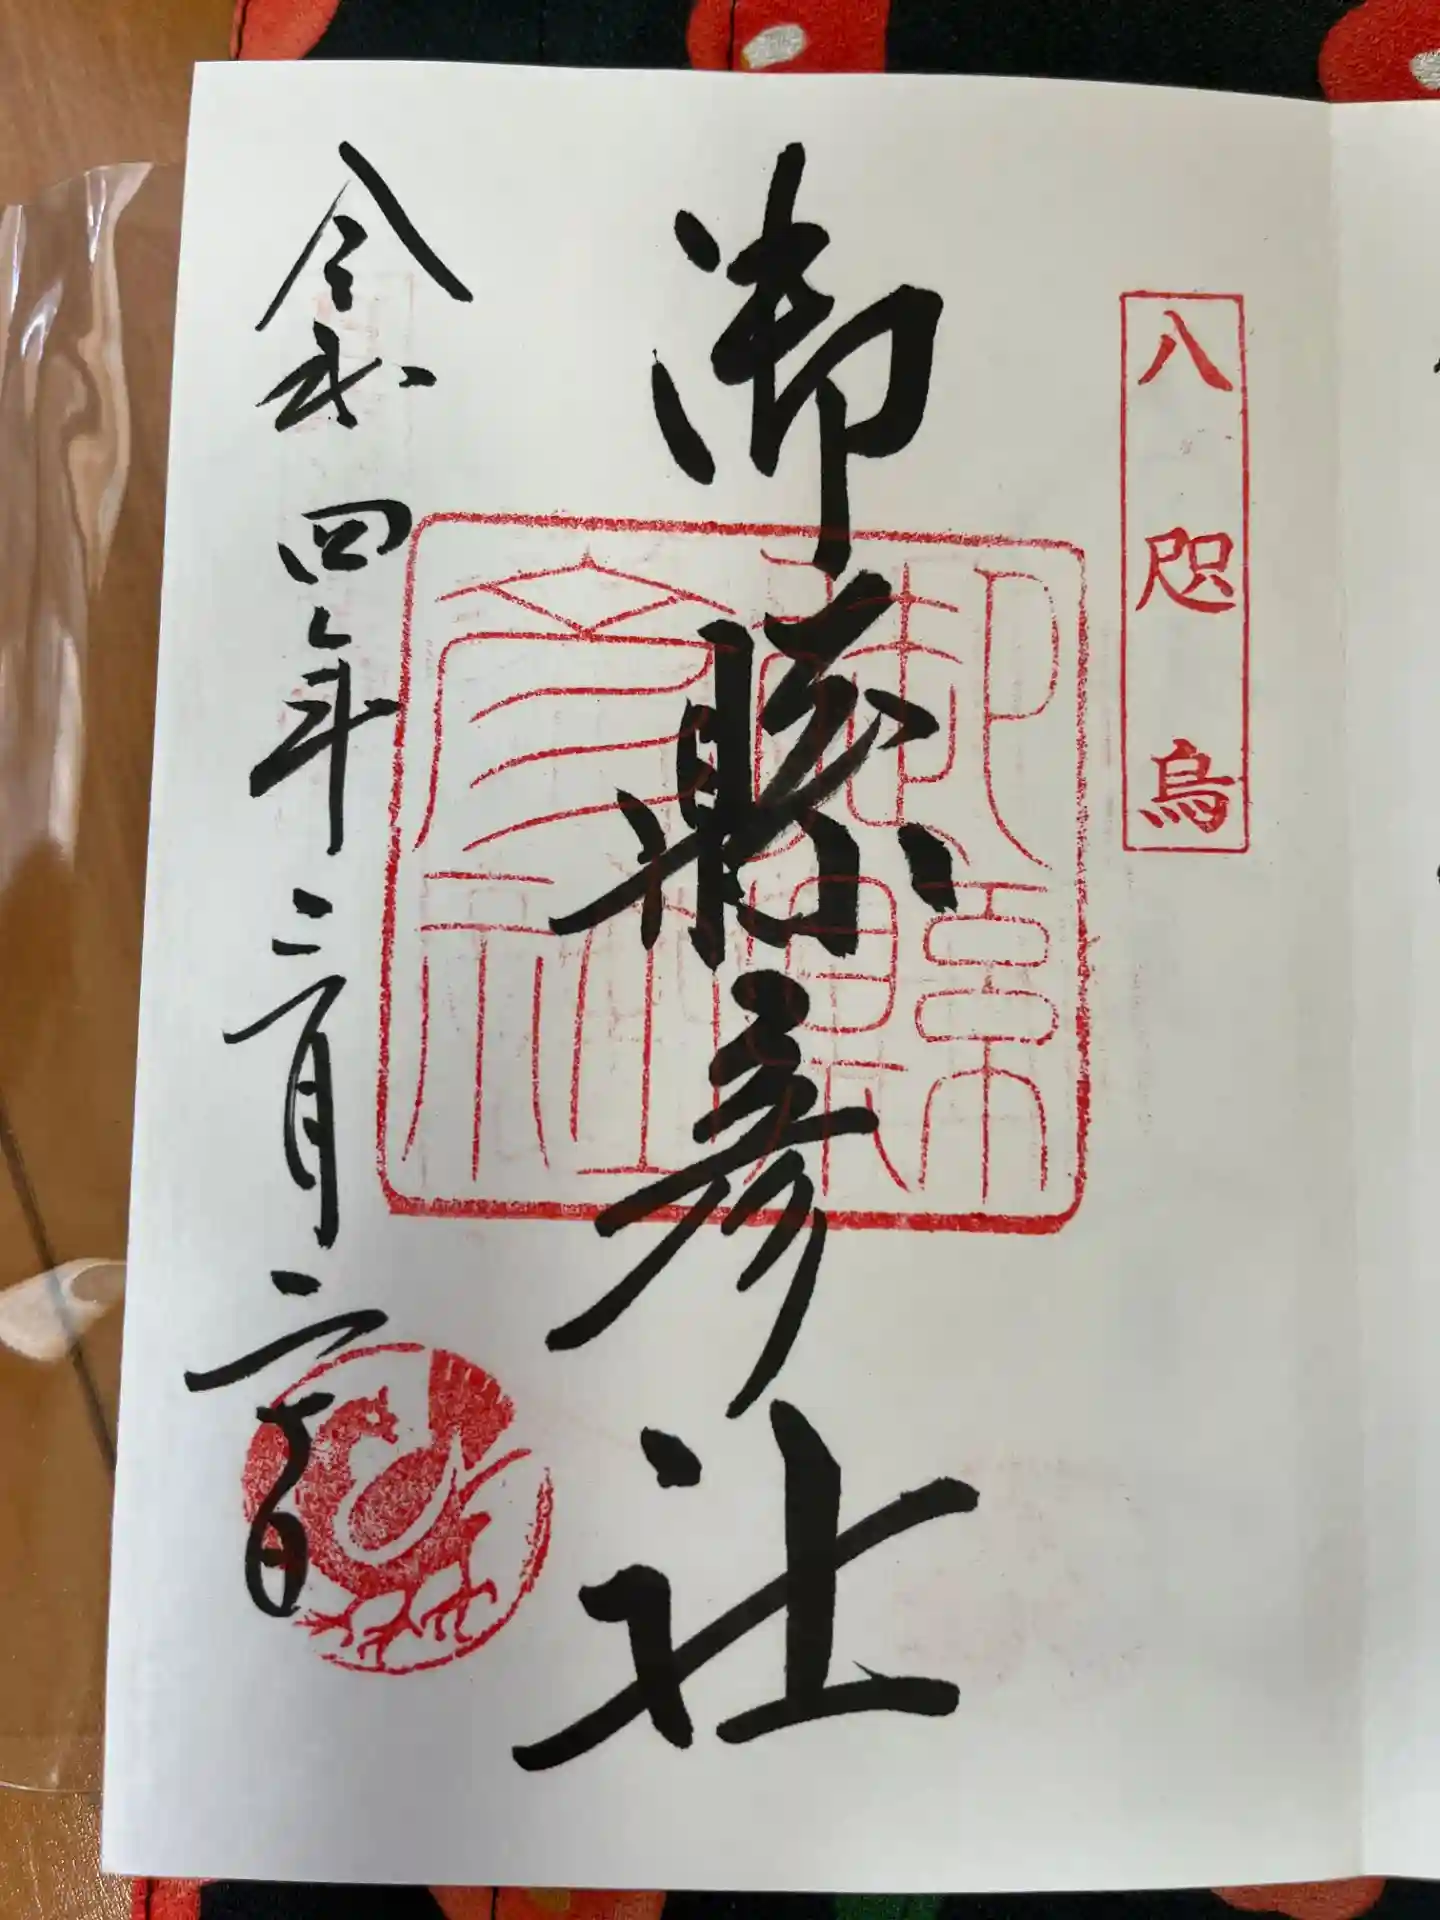 八咫烏
御縣彦社
令和四年三月二十日
御縣彦社